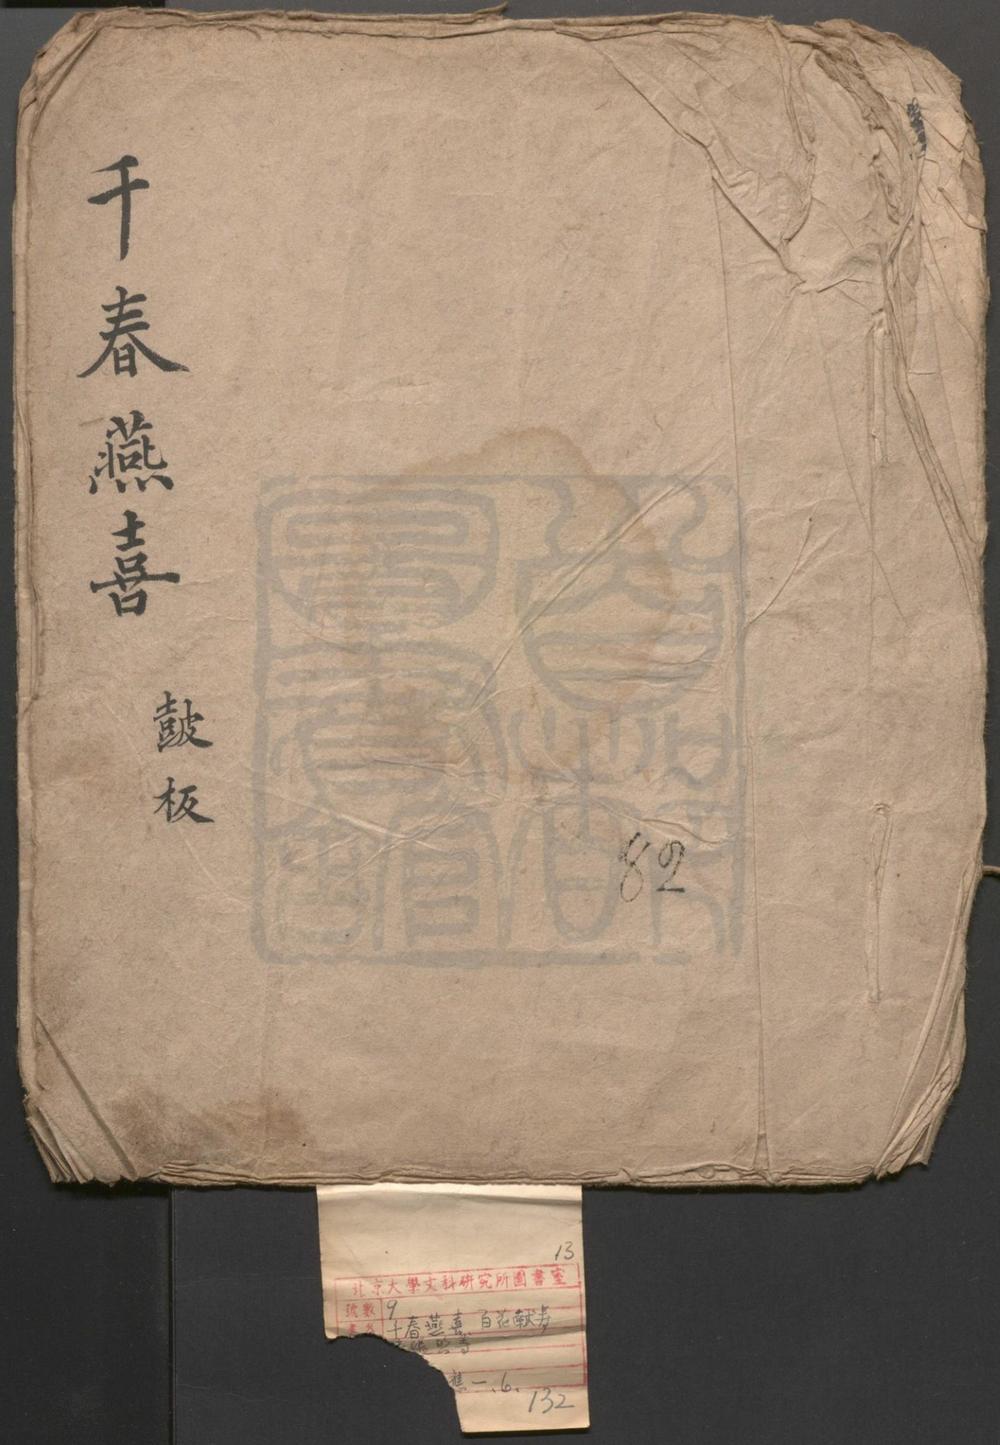 千春燕喜
鼓板
82
13
北京大學文科研究所圖書室
號數 9
書名 千春燕喜 百花献寿
一.6.
132